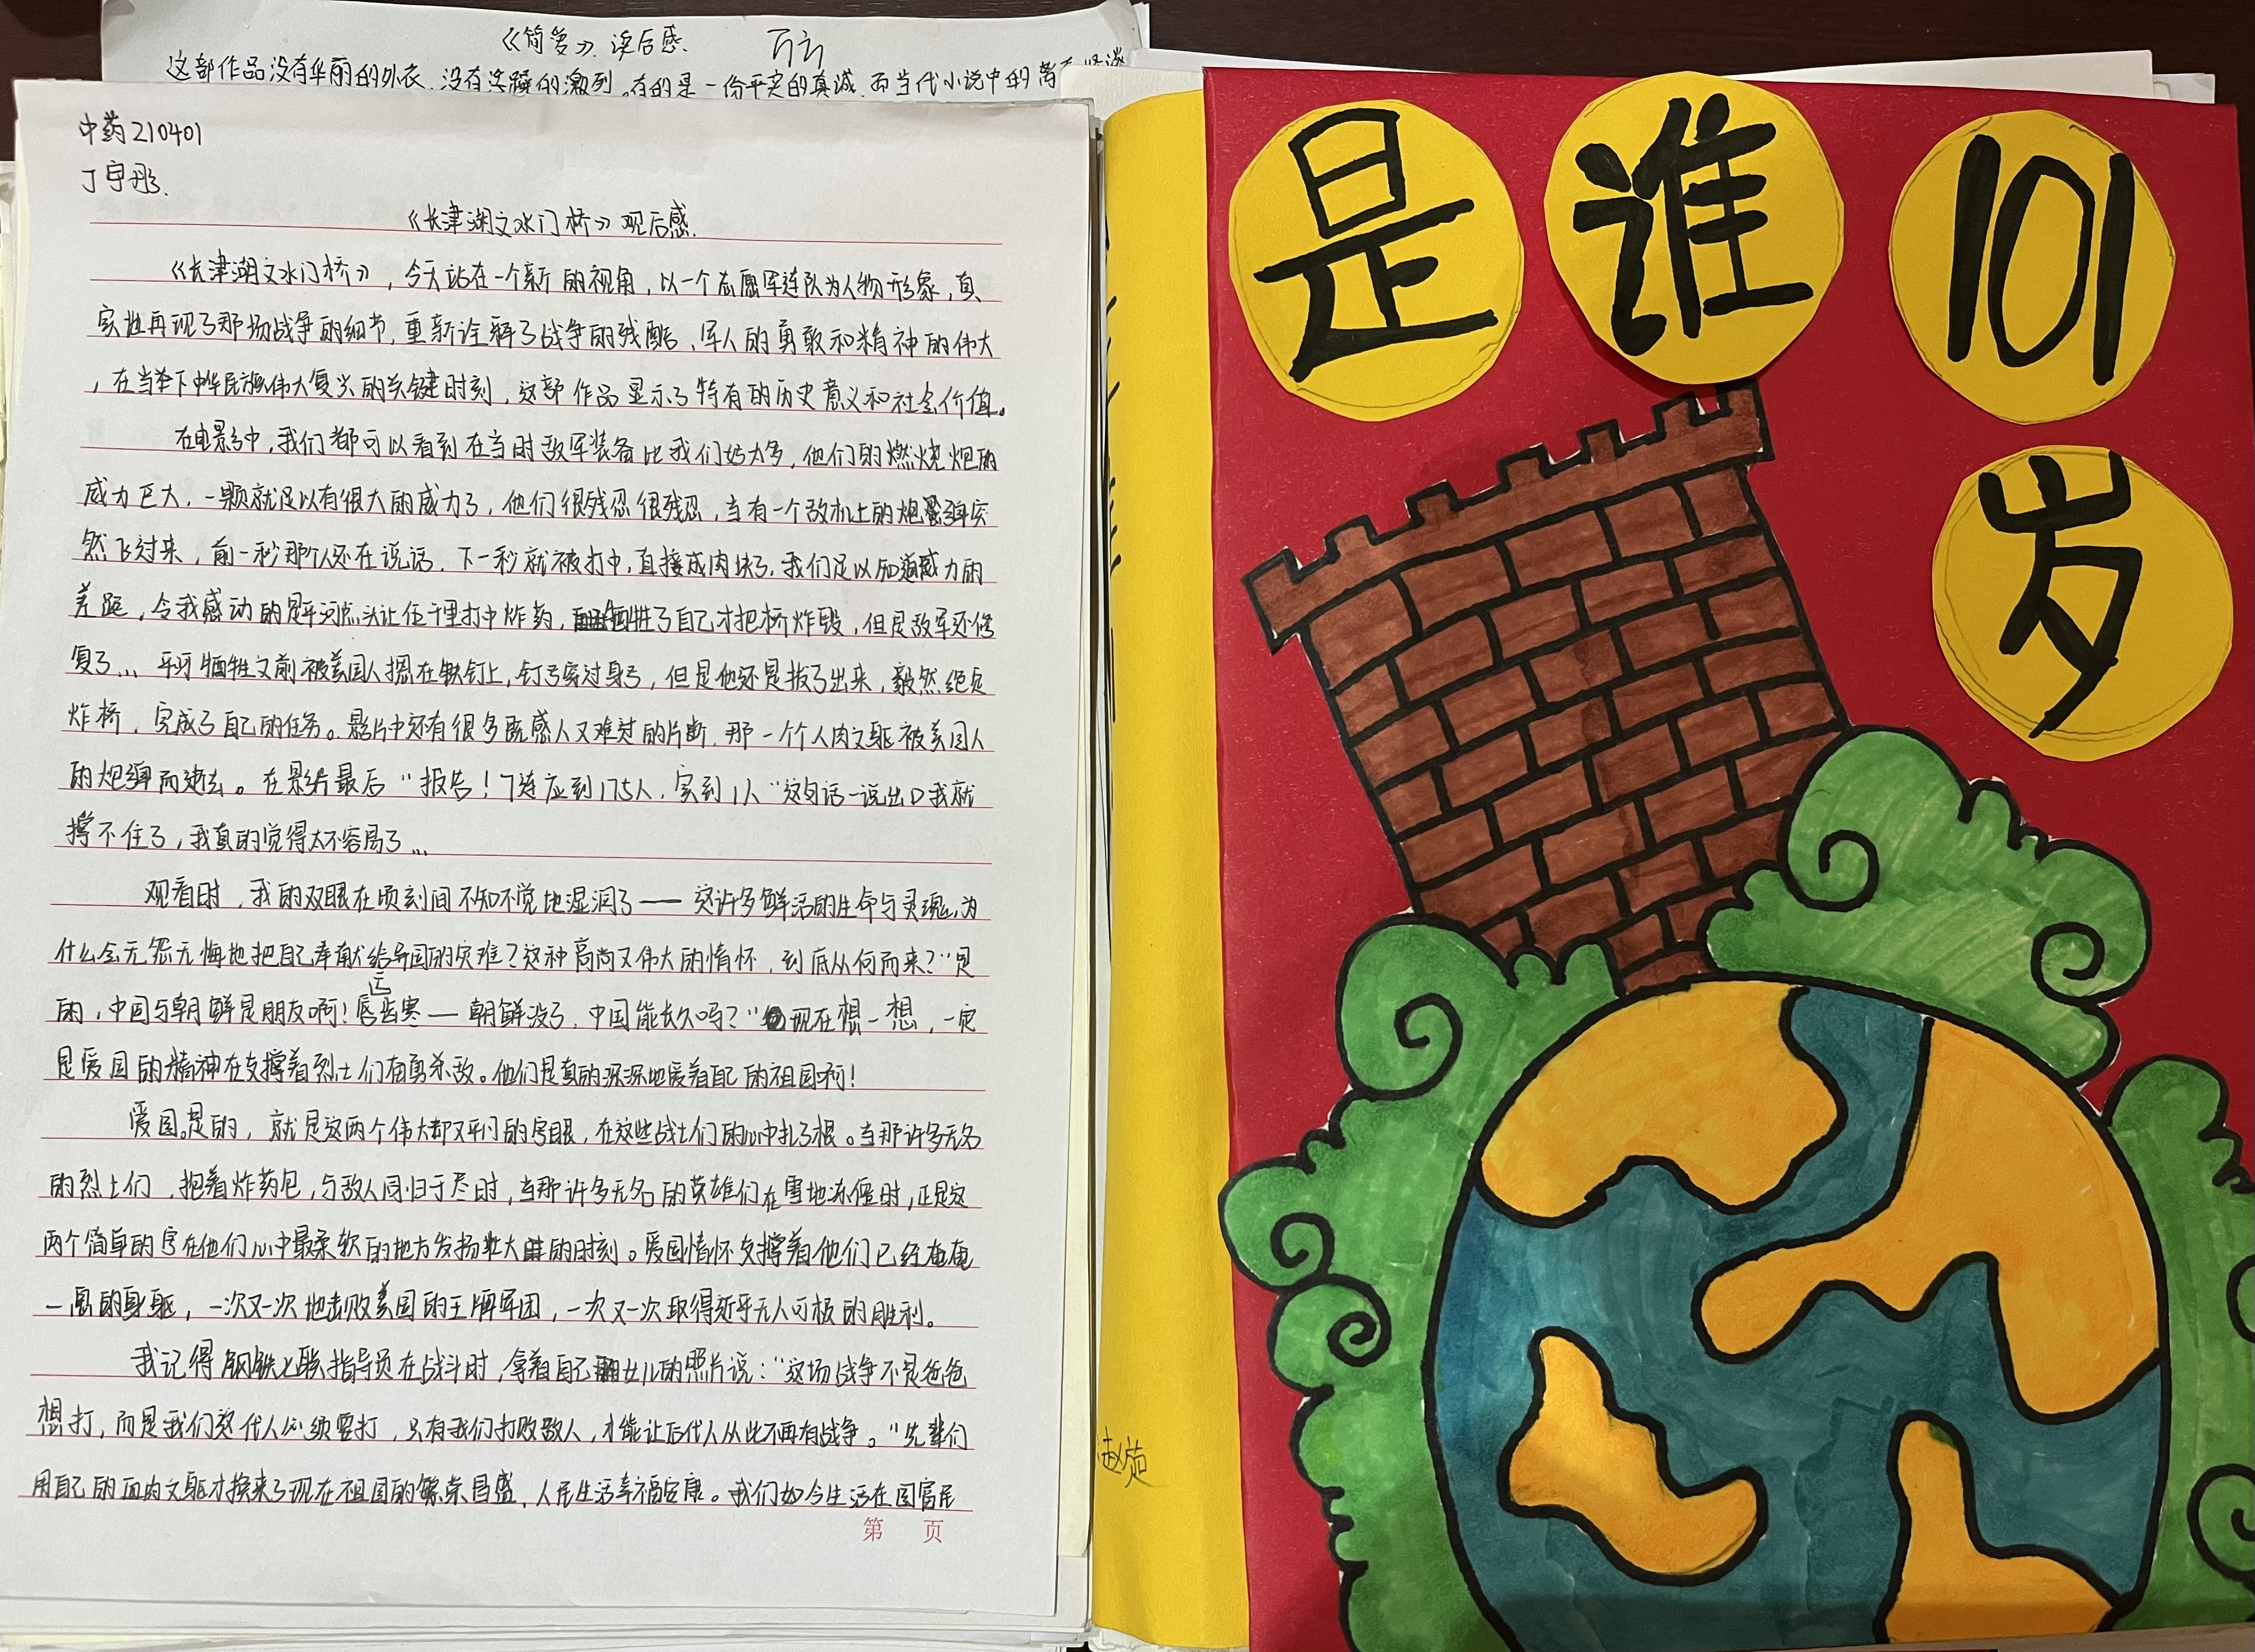 《简爱》读后感.
这部作品没有华丽的外衣,没有浮躁的激烈。有的是一份平实的真诚,而当代小说中的
中药210401
丁宇彤.
《长津湖之水门桥》观后感.
《长津湖之水门桥》,今天站在一个新的视角,以一个志愿军连队为人物形象,真
实地再现了那场战争的细节,重新诠释了战争的残酷、军人的勇敢和精神的伟大
,在当今下中华民族伟大复兴的关键时刻,这部作品显示了特有的历史意义和社会价值。
在电影中,我们都可以看到在当时敌军装备比我们好太多,他们的燃烧炮的
威力巨大,一颗就足以有很大的威力了,他们很残忍很残忍,当有一个敌机上的炮弹突
然飞过来,前一秒那个人还在说话,下一秒就被打中,直接成肉块了,我们足以知道威力的
差距,令我感动的是平河点头让伍千里打中炸药,牺牲了自己才把桥炸毁,但是敌军还修
复了... 平河牺牲之前被美国人摁在铁钉上,钉子穿过身子,但是他还是拔了出来,毅然绝然
炸桥,完成了自己的任务。影片中还有很多既感人又难过的片断,那一个个人肉之躯被美国人
的炮弹而逝去。在影片最后“报告!7连应到175人,实到1人”这句话一说出口我就
撑不住了,我真的觉得太不容易了...
观看时,我的双眼在顷刻间不知不觉地湿润了——这许多鲜活的生命与灵魂,为
什么会无怨无悔地把自己奉献给异国的灾难?这种高尚又伟大的情怀,到底从何而来?“是
的,中国与朝鲜是朋友啊!唇亡齿寒——朝鲜没了,中国能长久吗?”现在想一想,一定
是爱国的精神在支撑着烈士们奋勇杀敌。他们是真的深深地爱着自己的祖国啊!
爱国。是的,就是这两个伟大却又平凡的字眼,在这些战士们的心中扎了根。当那许多无名
的烈士们,抱着炸药包,与敌人同归于尽时,当那许多无名的英雄们在雪地冻僵时,正是这
两个简单的字在他们心中最柔软的地方发扬壮大的时刻。爱国情怀支撑着他们已经奄奄
一息的身躯,一次又一次地击败美国的王牌军团,一次又一次取得近乎无人可极的胜利。
我记得钢铁七联指导员在战斗时,拿着自己女儿的照片说:“这场战争不是爸爸
想打,而是我们这代人必须要打,只有我们打败敌人,才能让后代人从此不再有战争。”先辈们
用自己的血肉之躯才换来了现在祖国的繁荣昌盛,人民生活幸福安康。我们如今生活在国富民
第 页
是谁101
岁